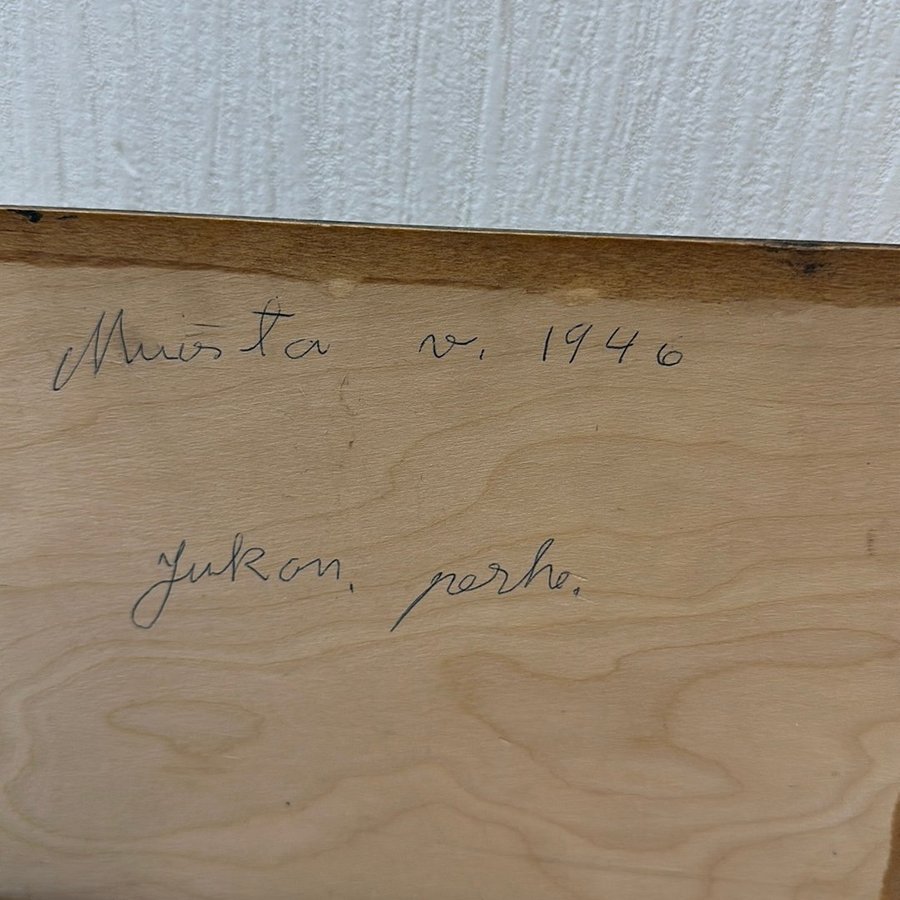 Muista v. 1946
Jukon. perhe.